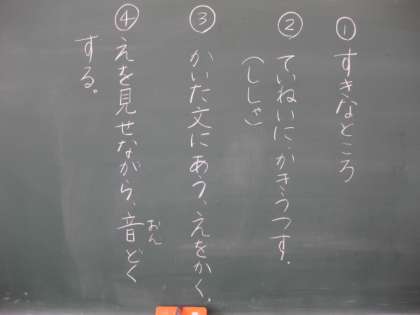 ① すきなところ
② ていねいに、かきうつす。
（ししゃ）
③ かいた文にあう、えをかく。
④ えを見せながら、音どく
おん
する。